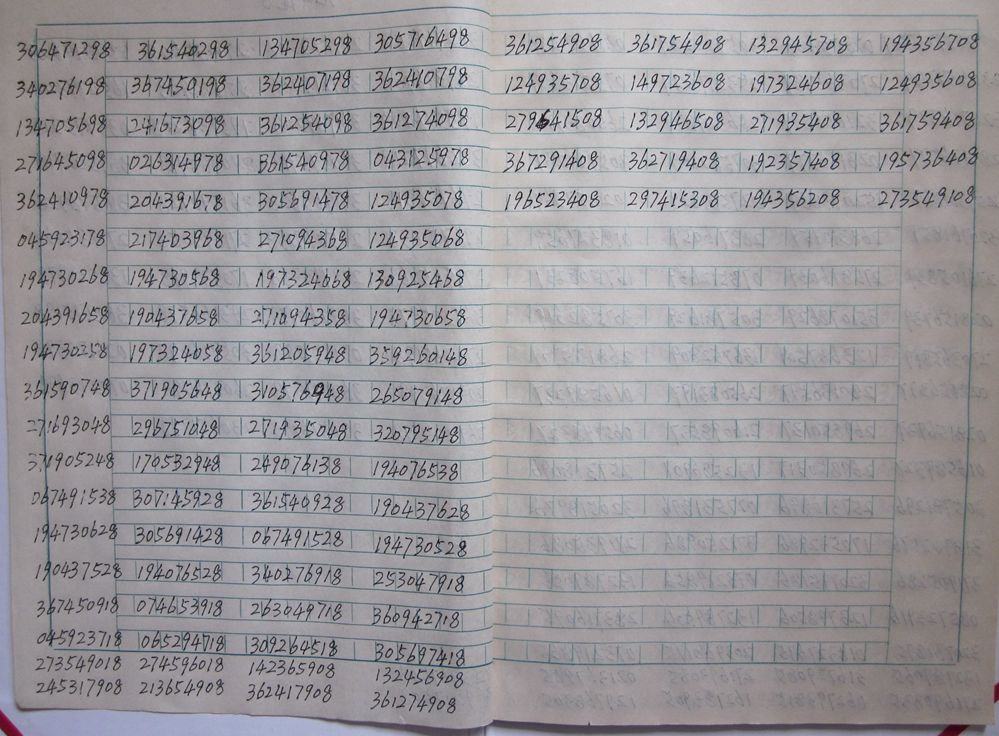 306471298 361540298 134705298 305716498 361254908 361754908 132945708 194356708
340276198 367450198 362407198 362410798 124935708 149723608 197324608 124935608
134705698 241673098 361254098 361274098 279641508 132946508 271935408 361759408
271645098 026314978 361540978 043125978 367291408 362719408 192357408 195736408
362410978 204391678 305691478 124935078 196523408 297415308 194356208 273549108
045923178 217403968 271094368 124935068
194730268 194730568 197324068 130925468
204391658 190437658 271094358 194730658
194730258 197324058 361205948 359260148
361590748 371905648 310576948 265079148
271693048 296751048 271935048 320795148
371905248 170532948 249076138 194076538
067491538 307145928 361540928 190437628
194730628 305691428 067491528 194730528
190437528 194076528 340276918 253047918
367450918 074653918 263049718 360942718
045923718 065294718 309264518 305697418
273549018 274596018 142365908 132456908
245317908 213654908 362417908 361274908